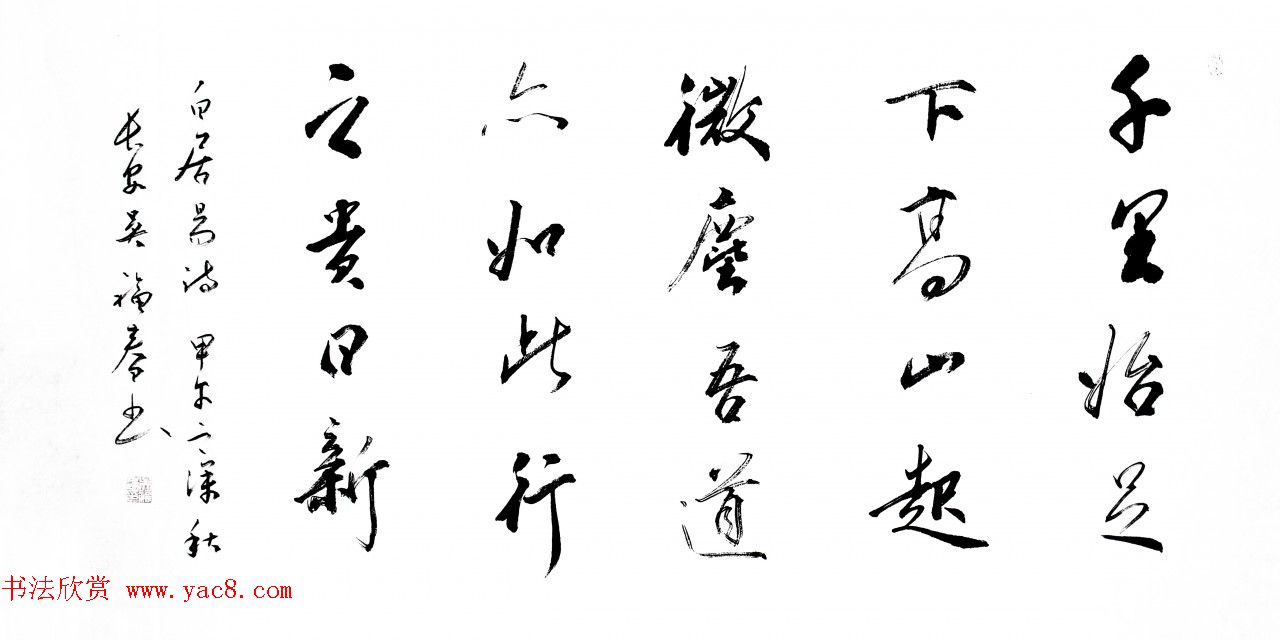 千里始足
下高山起
微塵吾道
亦如此行
之貴日新
白居易詩 甲午之深秋
長安吳福春書
书法欣赏 www.yac8.com